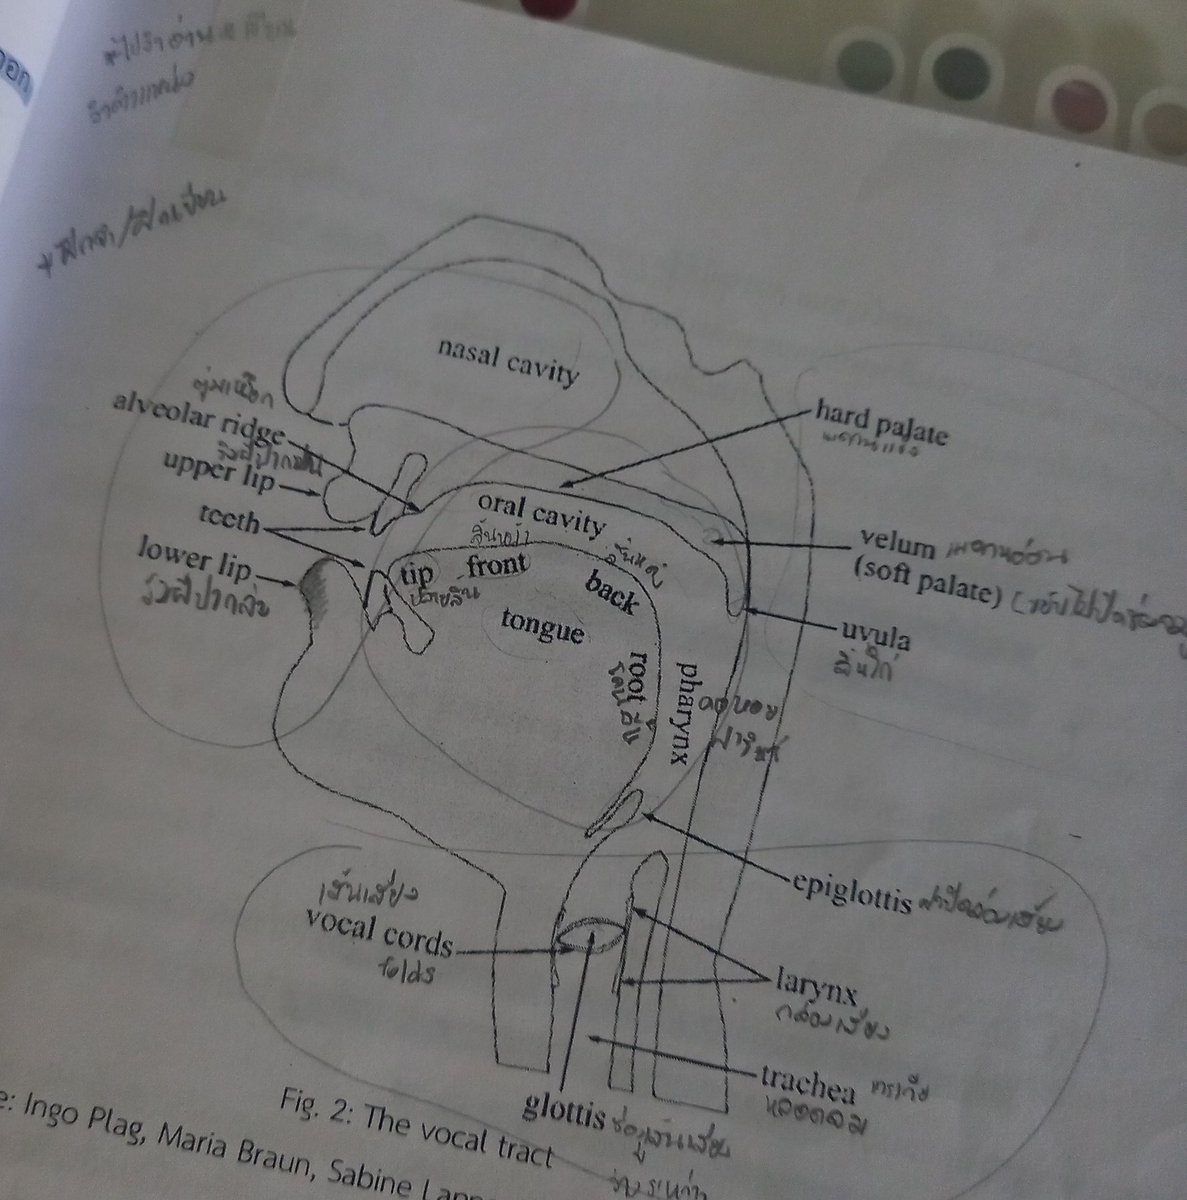 + ฝึกจำ/ฝึกเขียน
nasal cavity
ปุ่มเหงือก
alveolar ridge
hard palate
เพดานแข็ง
upper lip
ริมฝีปากบน
teeth
oral cavity
lower lip
ริมฝีปากล่าง
velum เพดานอ่อน
(soft palate)
tip
ปลายลิ้น
front
back
tongue
uvula
ลิ้นไก่
root
โคนลิ้น
pharynx
คอหอย
epiglottis ฝาปิดกล่องเสียง
เส้นเสียง
vocal cords
folds
larynx
กล่องเสียง
trachea
หลอดลม
glottis
Fig. 2: The vocal tract
e: Ingo Plag, Maria Braun, Sabine